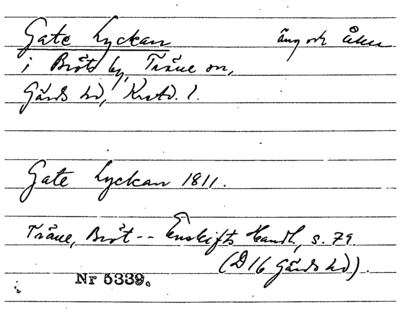 Gate Lyckan äng och åker
i Bröts by, Träne sn,
Gärds hd, Krstd. l.
Gate Lyckan 1811.
Träne, Bröt -- Enskifts Handl., s. 79
(D16 Gärds hd).
Nr 5339.